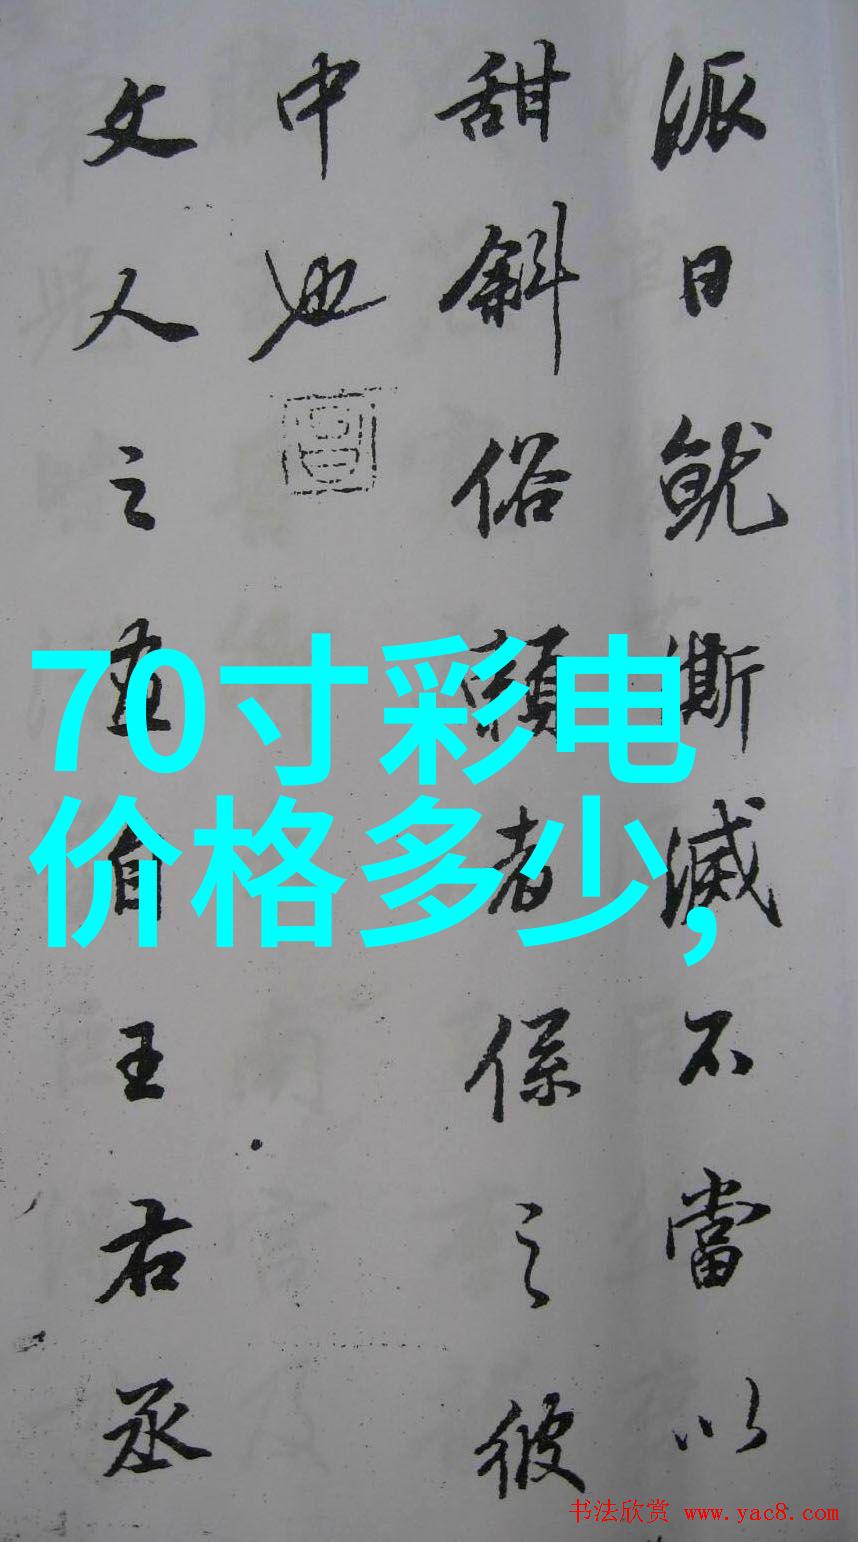 派日就澌滅不當以
甜斜俗賴者係之彼
中也
文人之畫自王右丞
70寸彩电
价格多少,
书法欣赏 www.yac8.com